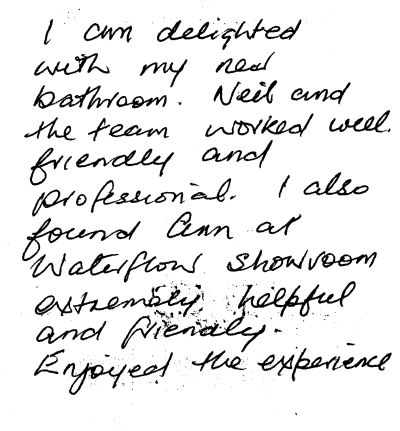 I am delighted
with my new
bathroom. Neil and
the team worked well.
friendly and
professional. I also
found Ann at
Waterflow showroom
extremely helpful
and friendly.
Enjoyed the experience